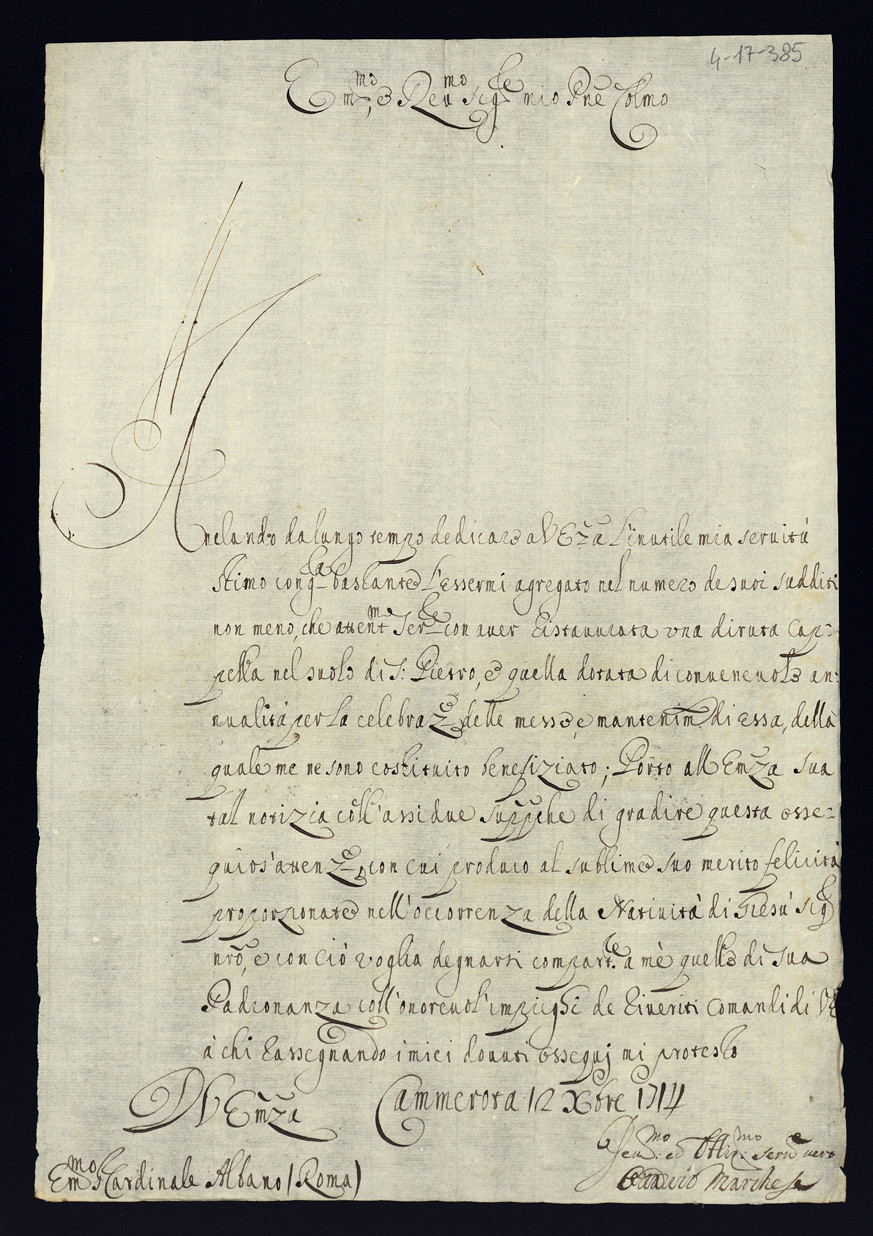 4-17-385
Em.mo, e Reu.mo Sig.re mio Pñe Colmo
Anelando da lungo tempo dedicare a V Em̃za l'inutile mia seruitù
stimo cong.la bastante l'essermi agregato nel numero de suoi sudditi
non meno, che con auer ristaurata una diruta Cap=
pella nel suolo di S: Pietro, e quella dotata di conueneuole an=
nualità per la celebraz.e delle messe, e mantenim.to di essa, della
quale me ne sono costituito benefiziato; Porto all Em̃za sua
tal notizia coll'assidue supp̃che di gradire questa osse=
quios'auen con cui produco al sublime suo merito felicità
proporzionate nell'occorrenza della Natiuità di Giesù Sig.re
nrõ, e con ciò voglia degnarsi compart.re a mè quelle di sua
Padronanza coll'onoreuol'impieghi de riueriti Comandi di VE
à chi rassegnando i miei douuti ossequj mi protesto
D V Em̃za Cammerota 12 Xbre 1714
Em.mo S. Cardinale Albano (Roma)
Deu.mo ed Obblig.mo seru.e uero
Marchese